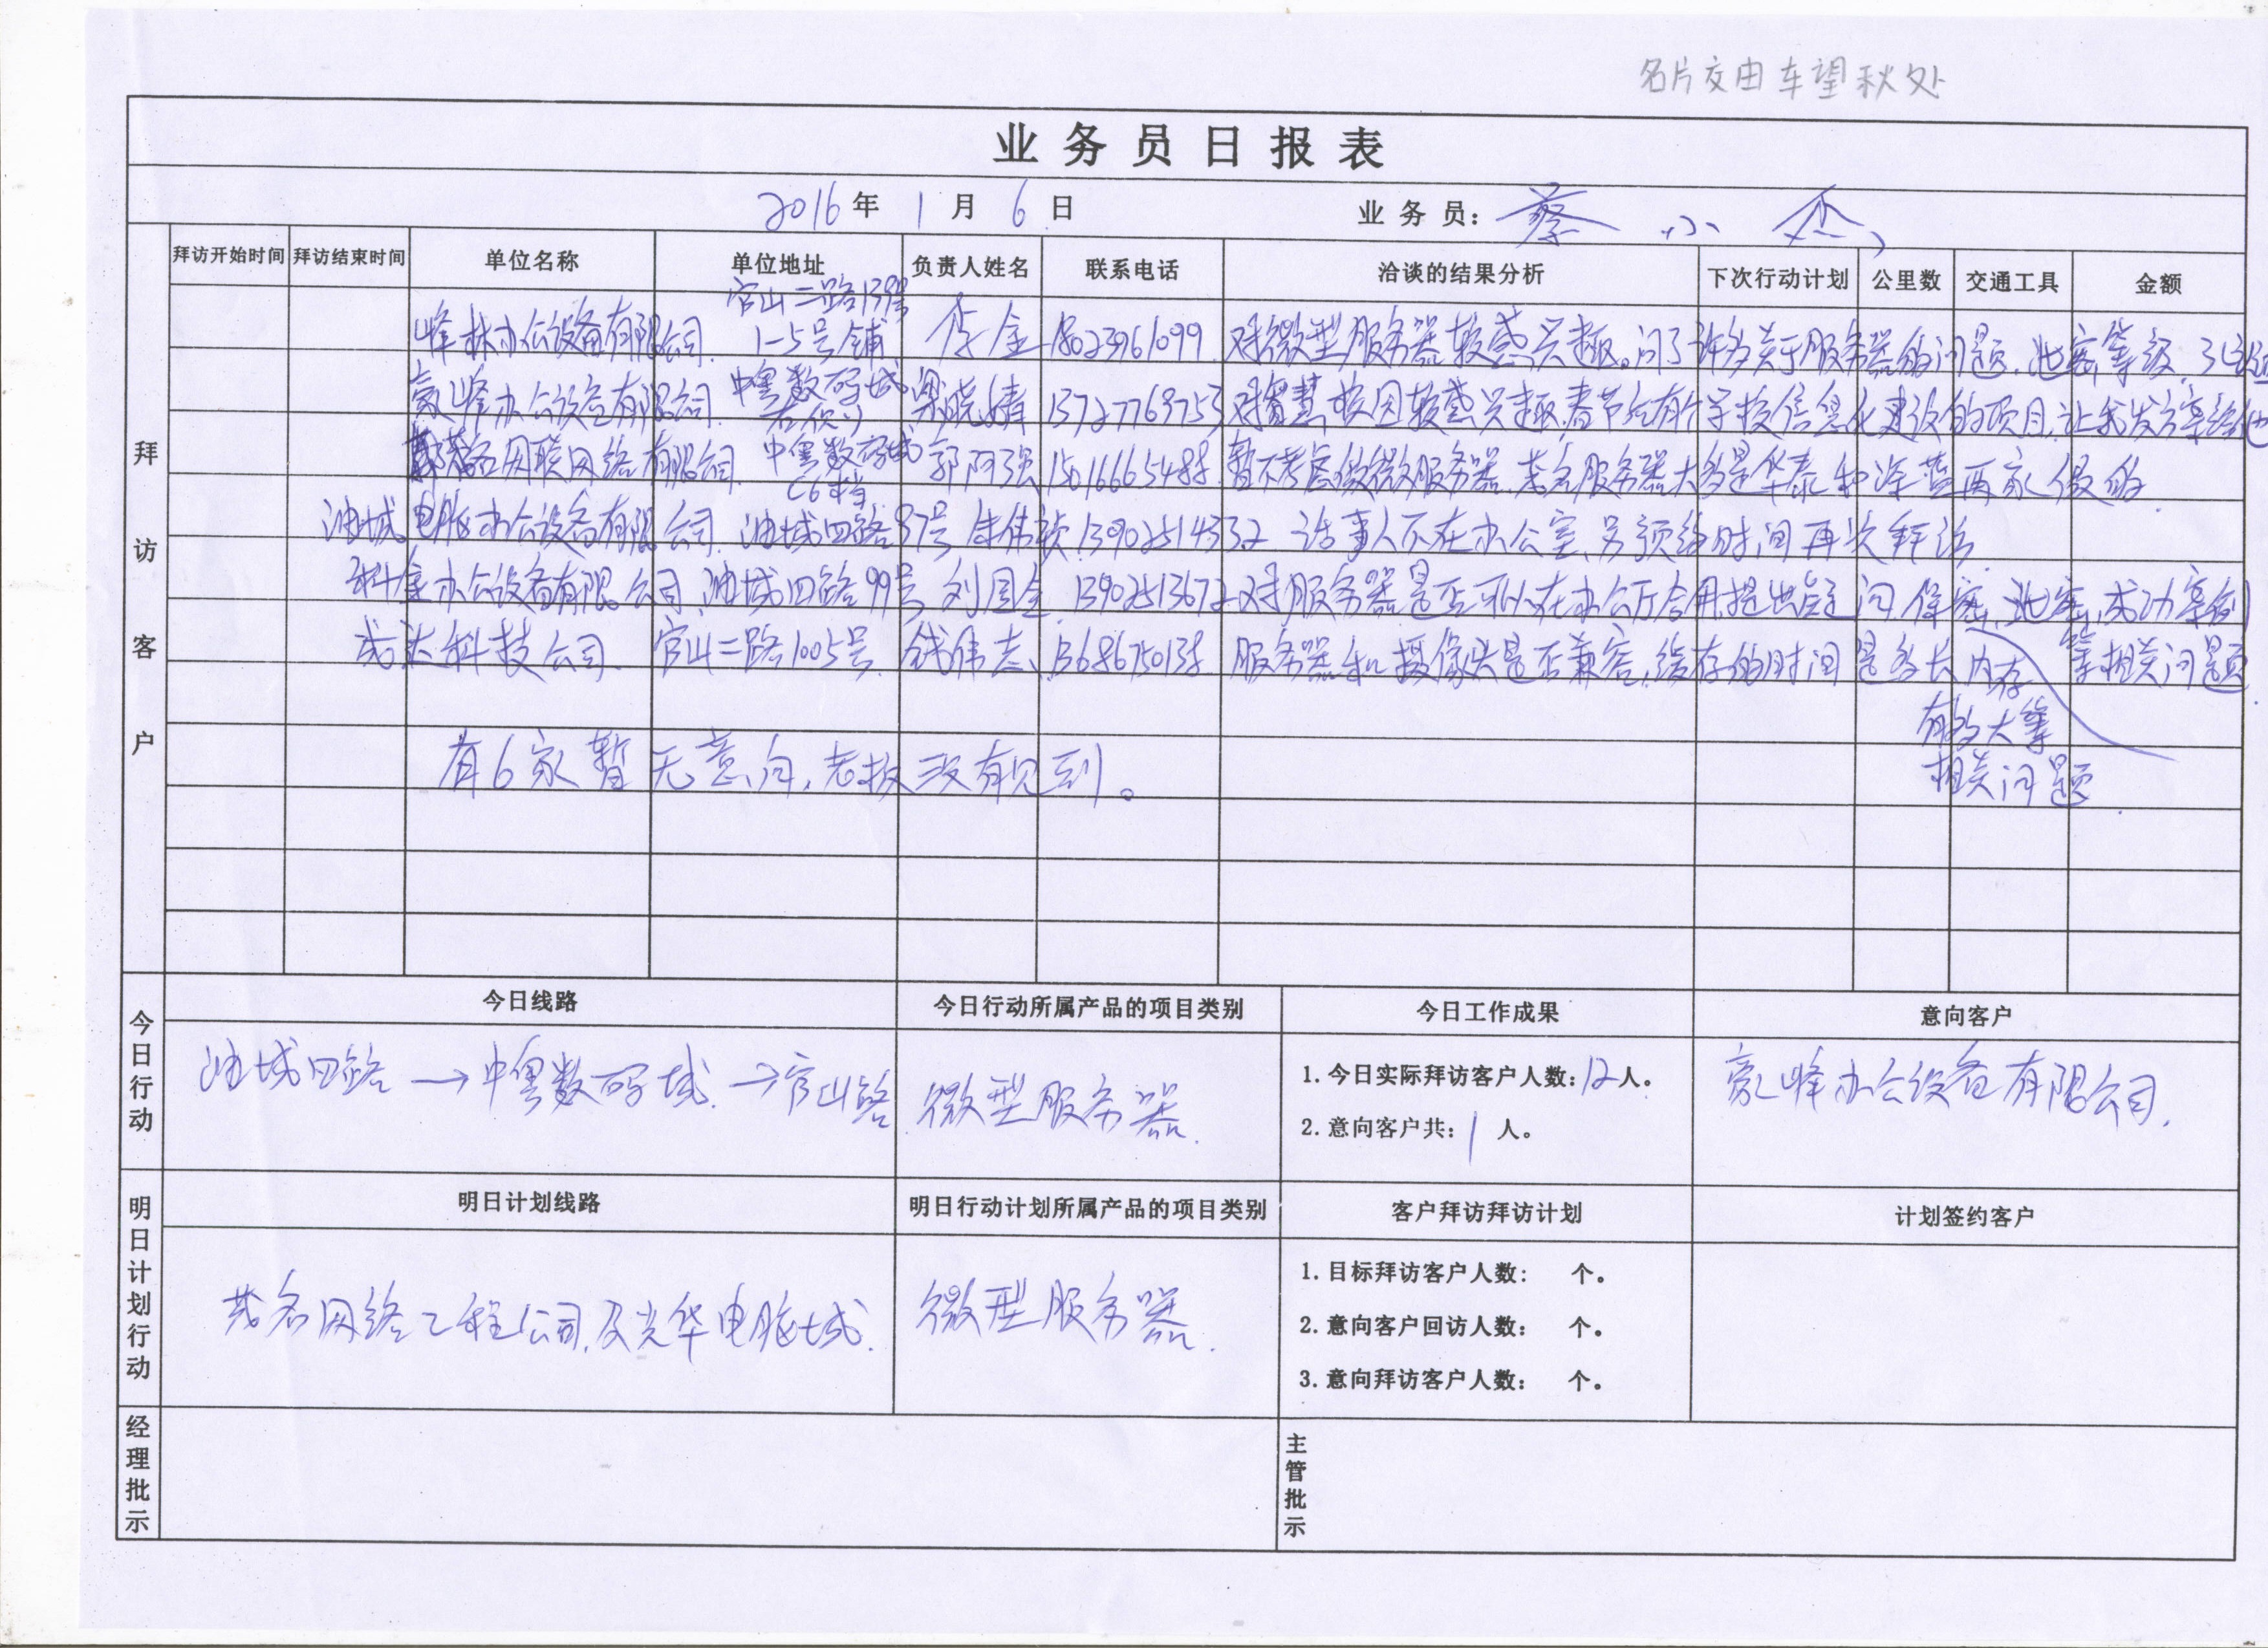 名片交由车望秋处
业务员日报表
2016年 1月 6日 业务员: 蔡小杰
拜访客户
拜访开始时间 拜访结束时间 单位名称 单位地址 负责人姓名 联系电话 洽谈的结果分析 下次行动计划 公里数 交通工具 金额
官山二路139号
峰林办公设备有限公司. 1-5号铺 李金 18023961099 对微型服务器较感兴趣。问了许多关于服务器的问题.泄密,等级.
豪峰办公设备有限公司. 中粤数码城 梁晓婧 13727768753 对智慧校园较感兴趣,春节后有个学校信息化建设的项目,让我发方案给他
茂名网联网络有限公司. 中粤数码城 郭阿强 15016665488 暂不考虑做微服务器.茂名服务器大多是华泰和深蓝两家做的
C6档
油城电脑办公设备有限公司. 油城四路87号 朱伟祯 13902514332 话事人不在办公室,另预约时间再次拜访
科宝办公设备有限公司, 油城四路99号 刘国金 13902513672 对服务器是否可以在办公厅合用提出疑问.保密,泄密,成功案例
等相关问题.
成达科技公司. 官山二路1005号 钱伟志 服务器和摄像头是否兼容,缓存的时间是多长,内存
有多大等
相关问题.
有6家暂无意向,老板没有见到。
今日行动
今日线路 今日行动所属产品的项目类别 今日工作成果 意向客户
油城四路→中粤数码城.→官山路 微型服务器. 1.今日实际拜访客户人数:12人。 豪峰办公设备有限公司.
2.意向客户共:1 人。
明日计划行动
明日计划线路 明日行动计划所属产品的项目类别 客户拜访拜访计划 计划签约客户
茂名网络工程公司,及光华电脑城. 微型服务器. 1.目标拜访客户人数: 个。
2.意向客户回访人数: 个。
3.意向拜访客户人数: 个。
经理批示 主管批示